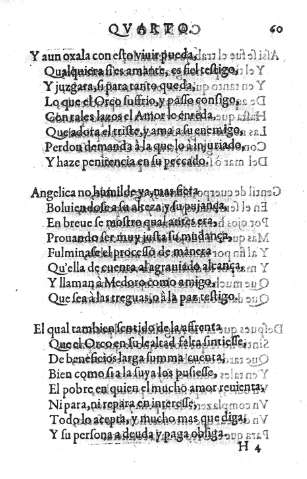 QVARTO. 60
Y aun oxala con esto viuir pueda,
Qualquiera si es amante, es fiel testigo,
Y juzgara, si para tanto queda,
Lo que el Orco suffrio, y passo consigo,
Con tales lazos el Amor lo enreda,
Que adora el triste, y ama a su enemigo,
Perdon demanda à la que lo à injuriado,
Y haze penitencia en su peccado.
Angelica no humilde ya, mas fiera
Boluiendose a su alteza y su pujança,
En breue se mostro qual antes era,
Prouando ser muy justa su mudança,
Fulminase el processo de manera
Qu'ella de cuenta al agrauiado alcança,
Y llaman a Medoro como amigo,
Que sea à las treguas, o à la paz testigo.
El qual tambien sentido de la afrenta
Que de Orco en su lealtad falta sintiesse,
De beneficios larga summa cuenta,
Bien como si a la suya los pusiesse,
El pobre en quien el mucho amor reuienta,
Ni para, ni repara en interesse,
Todo lo acepta, y mucho mas que diga,
Y su persona a deuda y paga obliga.
H 4